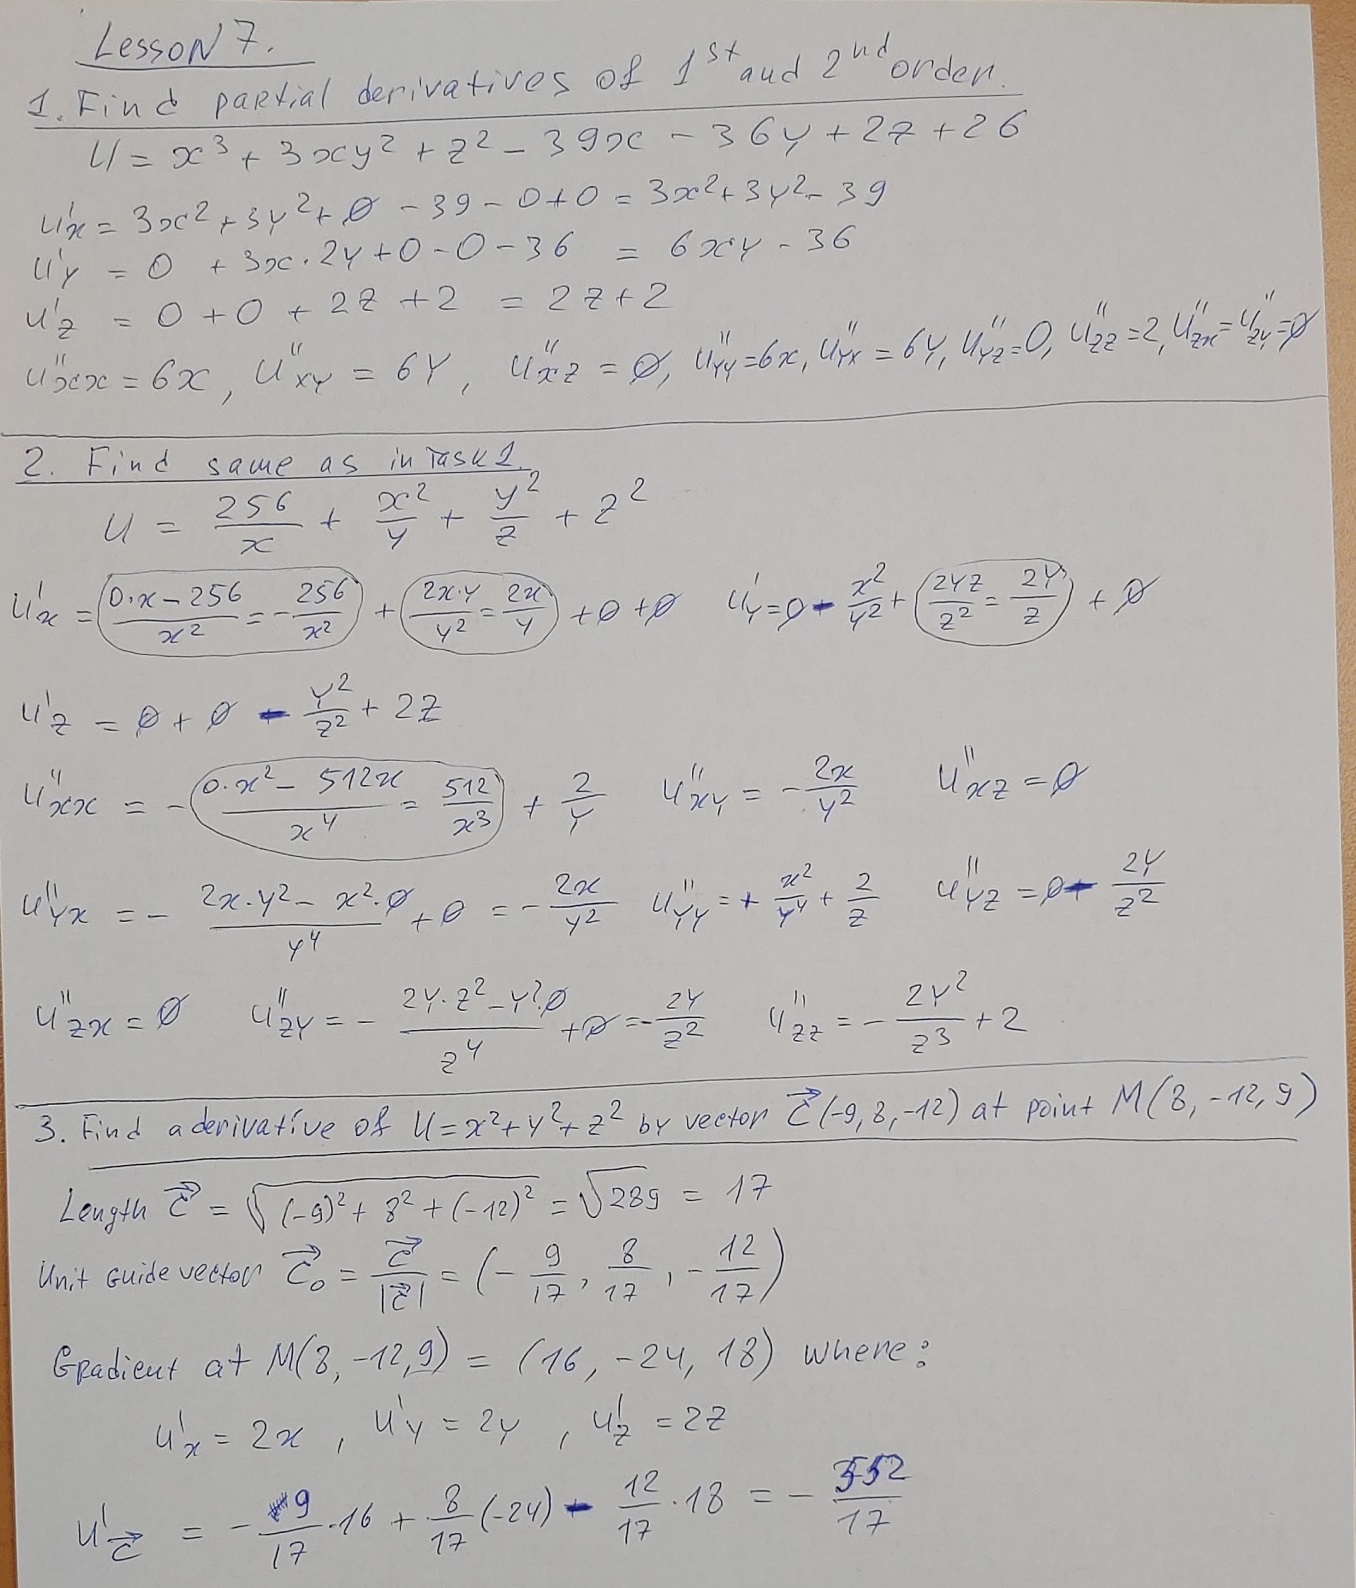 Lesson 7.
1. Find partial derivatives of 1st and 2nd order.
U = x³ + 3xy² + z² - 39x - 36y + 2z + 26
U'x = 3x² + 3y² + 0 - 39 - 0 + 0 = 3x² + 3y² - 39
U'y = 0 + 3x · 2y + 0 - 0 - 36 = 6xy - 36
U'z = 0 + 0 + 2z + 2 = 2z + 2
U''xx = 6x, U''xy = 6y, U''xz = 0, U''yy = 6x, U''yx = 6y, U''yz = 0, U''zz = 2, U''zx = U''zy = 0
2. Find same as in Task 1.
U = 256/x + x²/y + y²/z + z²
U'x = (0·x - 256)/x² = -256/x² + (2x·y)/y² = 2x/y + 0 + 0 U'y = 0 - x²/y² + 2yz/z² = 2y/z + 0
U'z = 0 + 0 - y²/z² + 2z
U''xx = -(0·x² - 512x)/x⁴ = 512/x³ + 2/y U''xy = -2x/y² U''xz = 0
U''yx = -(2x·y² - x²·0)/y⁴ + 0 = -2x/y² U''yy = + x²/y⁴ + 2/z U''yz = 0 - 2y/z²
U''zx = 0 U''zy = -(2y·z² - y²·0)/z⁴ + 0 = -2y/z² U''zz = -2y²/z³ + 2
3. Find a derivative of U = x² + y² + z² by vector c⃗(-9, 8, -12) at point M(8, -12, 9)
Length c⃗ = √((-9)² + 8² + (-12)²) = √289 = 17
Unit Guide vector c⃗₀ = c⃗/|c⃗| = (-9/17, 8/17, -12/17)
Gradient at M(8, -12, 9) = (16, -24, 18) where:
U'x = 2x, U'y = 2y, U'z = 2z
U'c⃗ = -9/17 · 16 + 8/17 (-24) - 12/17 · 18 = -552/17